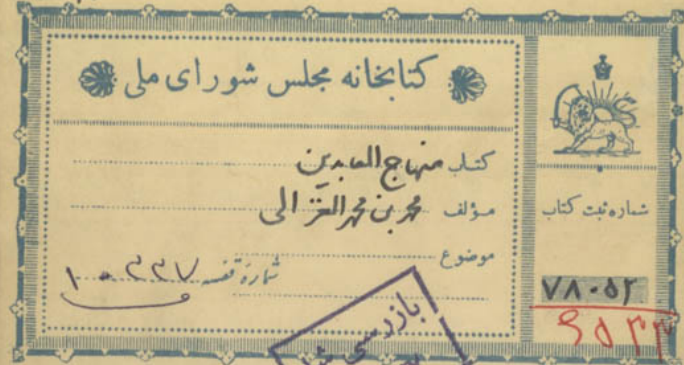 کتابخانه مجلس شورای ملی
کتاب منهاج العابدین
مؤلف محمد بن محمد الغزالی
موضوع
شماره قفسه ۱۰۲۳۷
شماره ثبت کتاب
۷۸۰۵۲
بازرسی شد